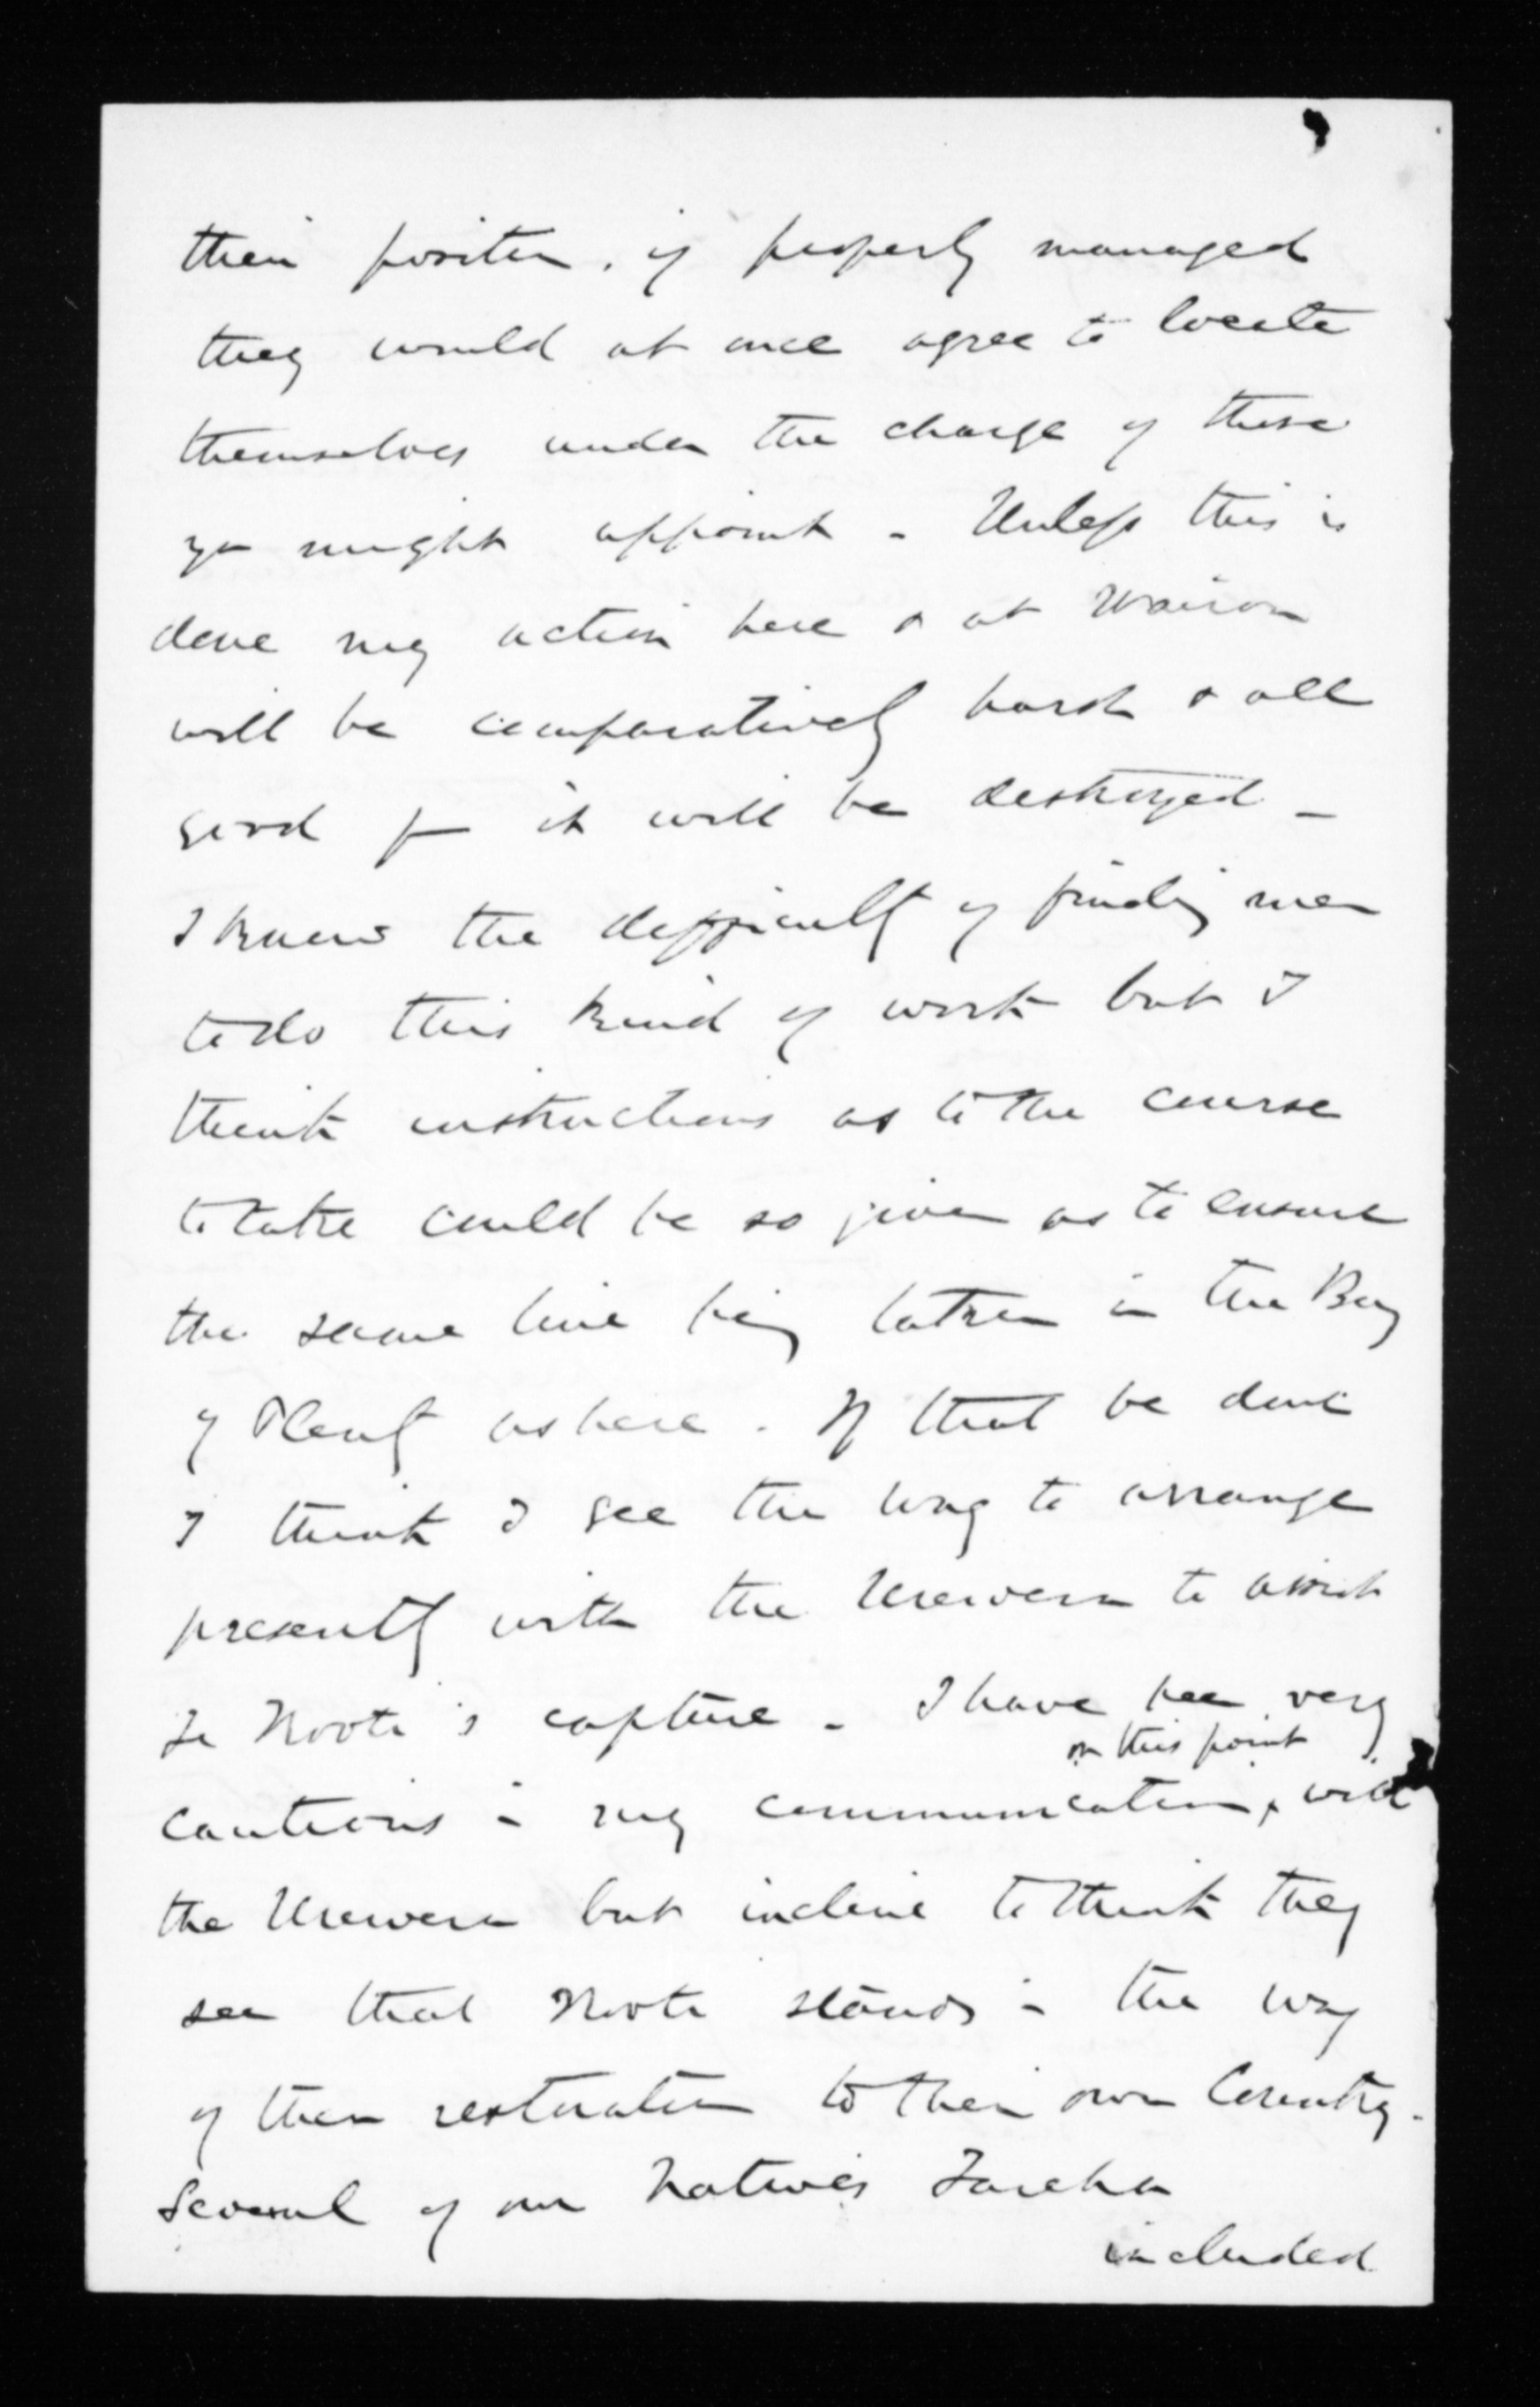 their position. if properly managed
they would at once agree to locate
themselves under the charge of those
you might appoint - Unless this is
done my action here & at Wairoa
will be comparatively harsh & all
good fm it will be destroyed -
I know the difficulty of finding men
to do this kind of work but I
think instructions as to the course
to take could be so given as to ensure
the same line being taken in the Bay
of Plenty as here. If that be done
I think I see the way to arrange
presently with the Urewera to assist
Te Kooti's capture - I have been very
on this point
cautious in my communication, with
the Urewera but incline to think they
see that Kooti stands in the way
of their restoration to their own Country.
Several of our Natives Tareha
included